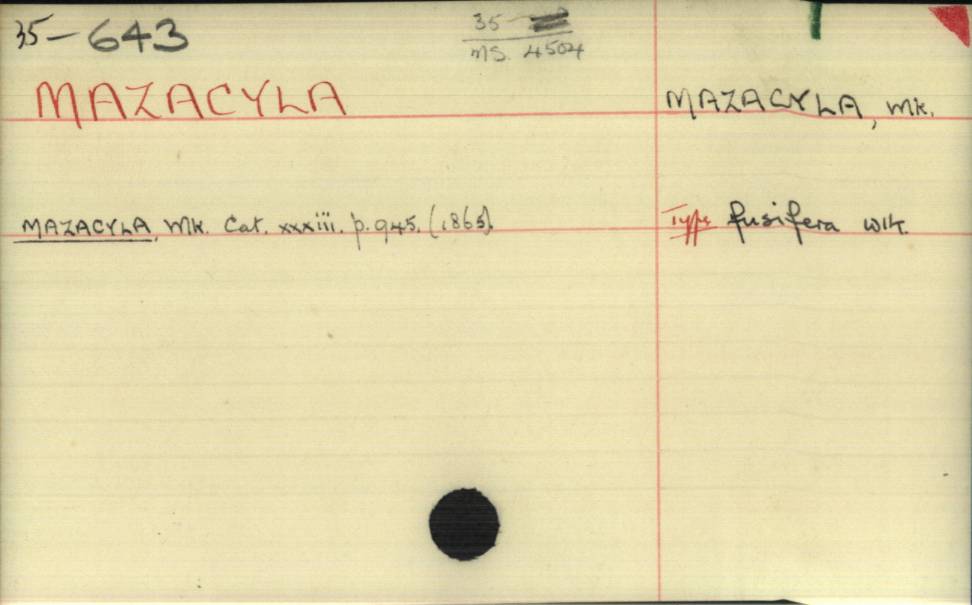 35-643
35
MS. 4504
MAZACYLA
MAZACYLA, Wlk.
MAZACYLA, Wlk. Cat. xxxiii. p. 945. (1865).
Type fusifera Wlk.